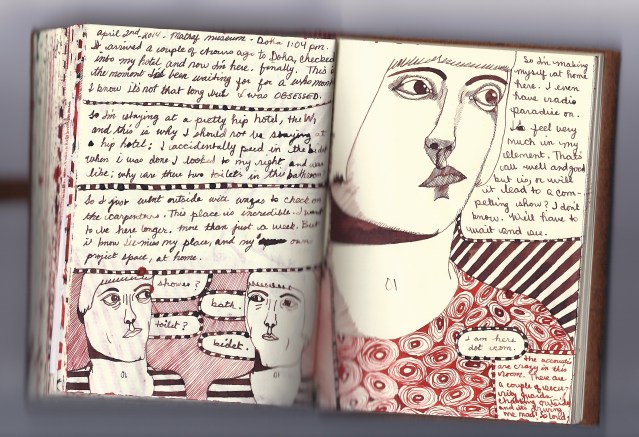 april 2nd, 2014 - Mathaf museum - Doha 1:04 pm.
I arrived a couple of hours ago to Doha, checked
into my hotel and now I'm here. finally. This is
the moment I'd been waiting for for a whole month
I know it's not that long but I was OBSESSED.
So I'm staying at a pretty hip hotel, the W,
and this is why I should not be staying at
a hip hotel: I accidentally peed in the bidet
when i was done I looked to my right and was
like: why are there two toilets in this bathroom
So I just went outside with wages to check on
the carpenters. This place is incredible. I want
to live here longer. more than just a week. But
i know I'll miss my place, and my own
project space, at home.
shower?
bath.
toilet?
bidet.
So I'm making
myself at home
here. I even
have radio
paradise on.
I feel very
much in my
element. That's
all well and good
but is, or will
it lead to a com-
pelling show? I don't
know. We'll have to
wait and see.
i am here
dot com.
the acoustics
are crazy in this
room. There are
a couple of secu-
rity guards
chatting outside
and it's driving
me mad! So loud!